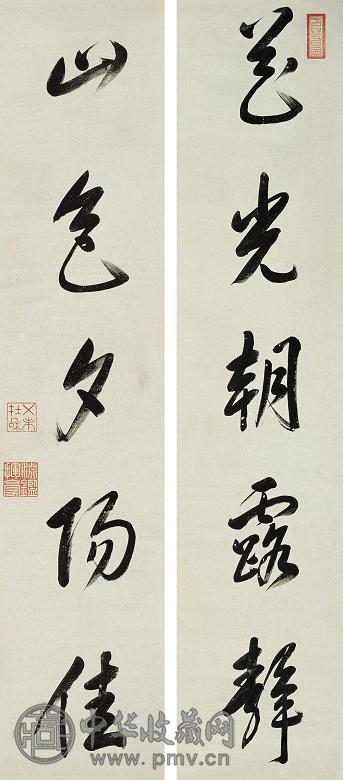 花光朝露静
山色夕陽佳
中华收藏网
www.pmv.cn